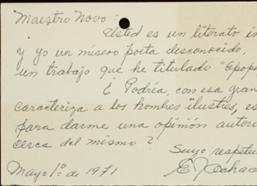 Maestro Novo
Usted es un literato in
y yo un mísero poeta desconocido,
un trabajo que he titulado "Epop
¿ Podría, con esa gran
caracteriza a los hombres ilustres, es
para darme una opinión autori
cerca del mismo ?
Suyo respetu
Mayo 1º de 1971